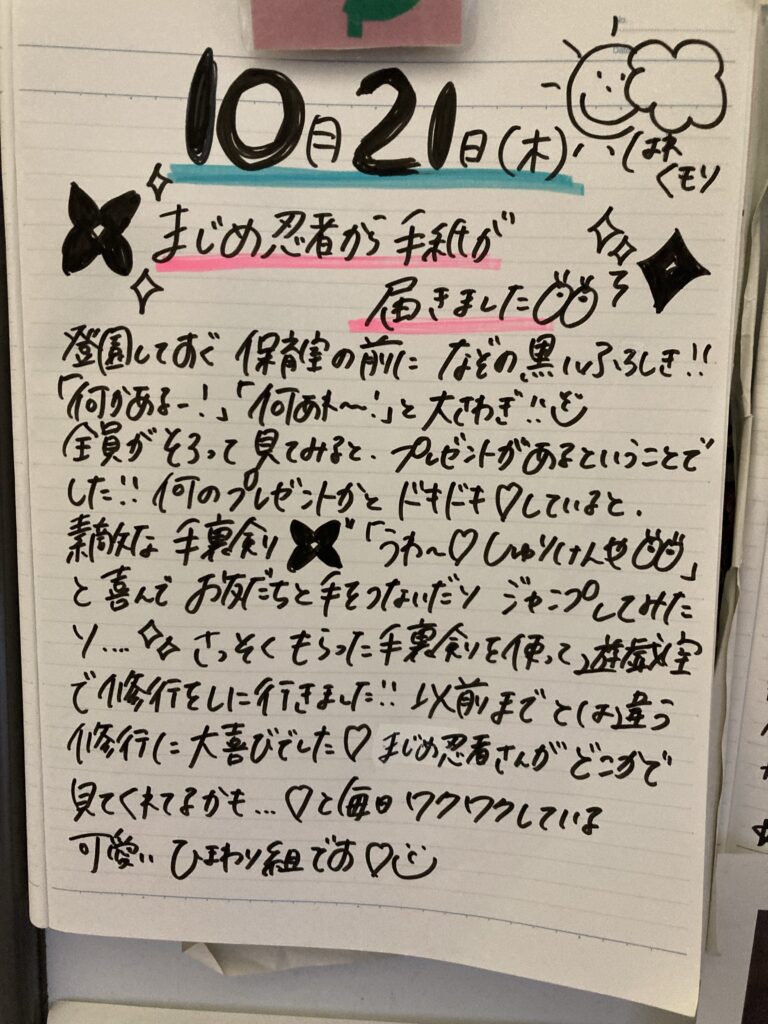 10月21日(木)
はれ
くもり
まじめ忍者から手紙が
届きました
登園してすぐ 保育室の前に なぞの黒いふろしき!!
「何かあるー!」「何あれ〜!」と大さわぎ!!
全員がそろって見てみると、プレゼントがあるということで
した!! 何のプレゼントかと ドキドキ♡していると、
素敵な 手裏剣 「うわ〜♡しゅりけんや 」
と喜んで お友だちと手をつないだり ジャンプしてみた
り…. さっそく もらった手裏剣を使って遊戯室
で修行をしに行きました!! 以前までとは違う
修行に 大喜びでした♡ まじめ忍者さんが どこかで
見てくれてるかも…♡と毎日 ワクワクしている
可愛い ひまわり組です♡